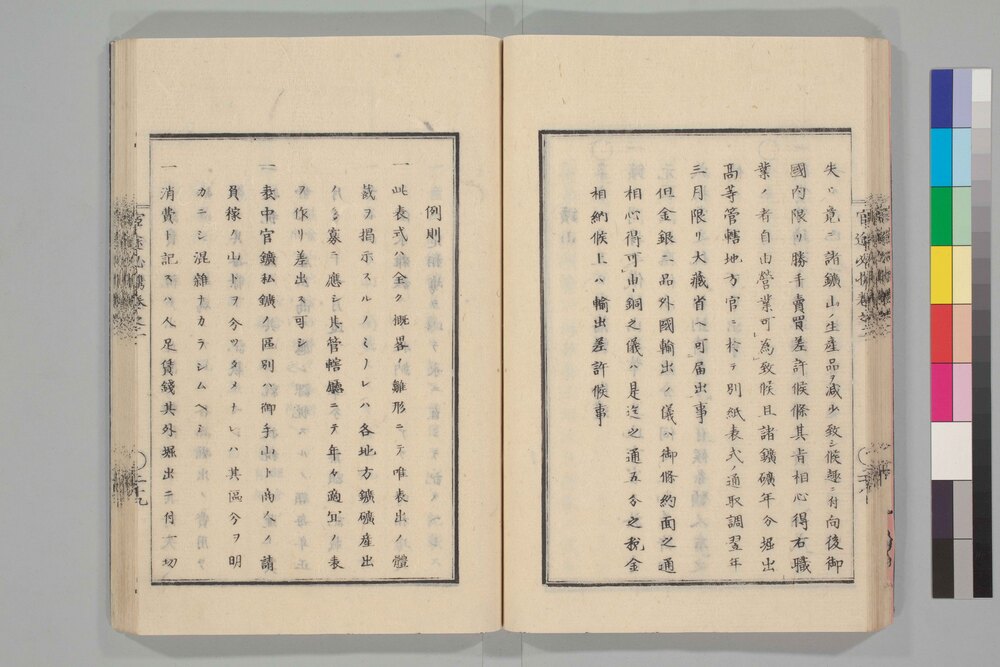 失ヒ竟ニ諸鑛山ノ生産品ヲ減少致シ候趣ニ付向後御
國内限リ勝手賣買差許候條其旨相心得右職
業ノ者自由營業可為致候且諸鑛礦年分堀出
高等管轄地方官ニ於テ別紙表式ノ通取調翌年
三月限リ大蔵省ヘ可届出事
但金銀二品外國輸出ノ儀ハ御條約面之通
相心得可申銅之儀ハ是迄之通五分之税金
相納候上ハ輸出差許候事
例則
一此表式ハ全ク概畧ノ雛形ニテ唯表出ノ體
裁ヲ揭示スルノミナレハ各地方鑛礦産出
ノ多寡ニ應シ其管轄廳ニテ年々適宜ノ表
ヲ作リ差出ス可シ
一表中官鑛私鑛ノ區別ハ御手山ト商人ノ請
負稼ク山トヲ分ツタメナレハ其區分ヲ明
カニシ混雜ナカラシムヘシ
一消費ト記スハ人足賃錢其外堀出ニ付一切